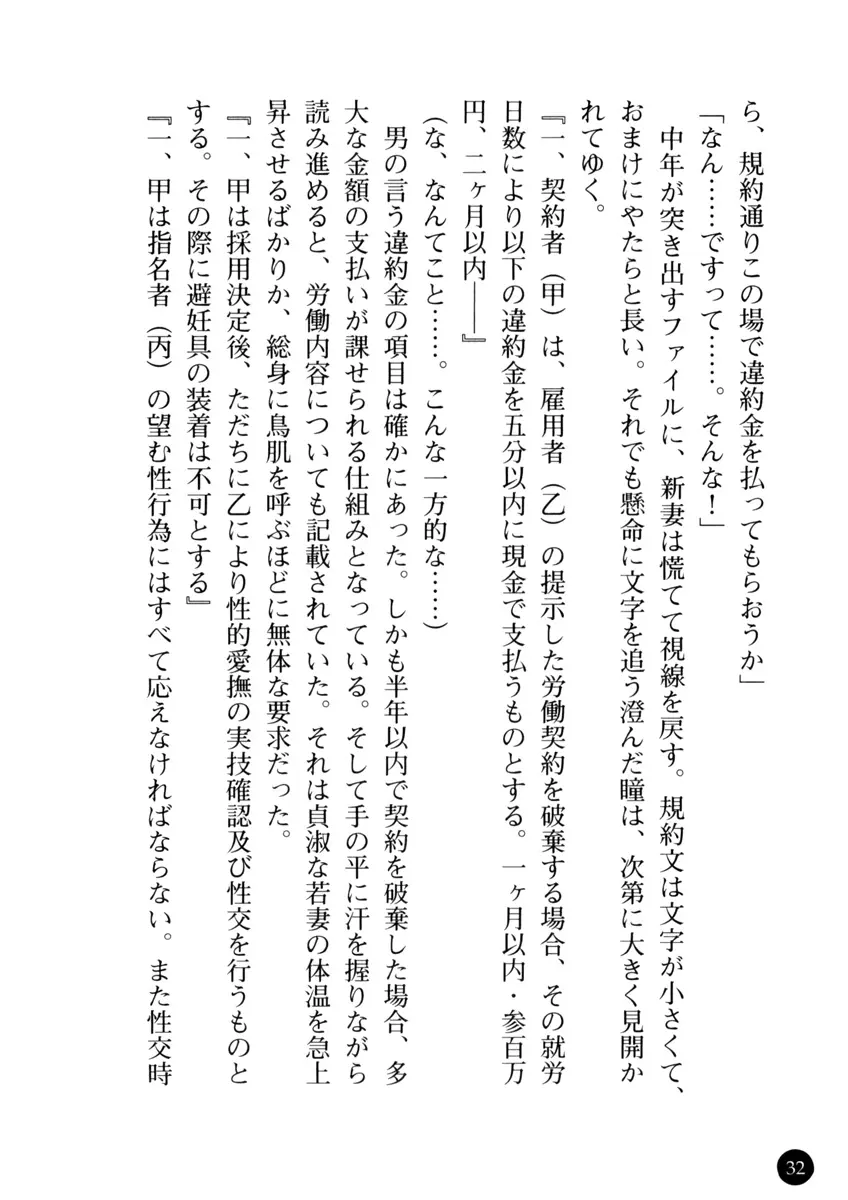 ら、規約通りこの場で違約金を払ってもらおうか」
「なん……ですって……。そんな！」
中年が突き出すファイルに、新妻は慌てて視線を戻す。規約文は文字が小さくて、
おまけにやたらと長い。それでも懸命に文字を追う澄んだ瞳は、次第に大きく見開か
れてゆく。
『一、契約者（甲）は、雇用者（乙）の提示した労働契約を破棄する場合、その就労
日数により以下の違約金を五分以内に現金で支払うものとする。一ヶ月以内・参百万
円、二ヶ月以内――』
（な、なんてこと……。こんな一方的な……）
男の言う違約金の項目は確かにあった。しかも半年以内で契約を破棄した場合、多
大な金額の支払いが課せられる仕組みとなっている。そして手の平に汗を握りながら
読み進めると、労働内容についても記載されていた。それは貞淑な若妻の体温を急上
昇させるばかりか、総身に鳥肌を呼ぶほどに無体な要求だった。
『一、甲は採用決定後、ただちに乙により性的愛撫の実技確認及び性交を行うものと
する。その際に避妊具の装着は不可とする』
『一、甲は指名者（丙）の望む性行為にはすべて応えなければならない。また性交時
32